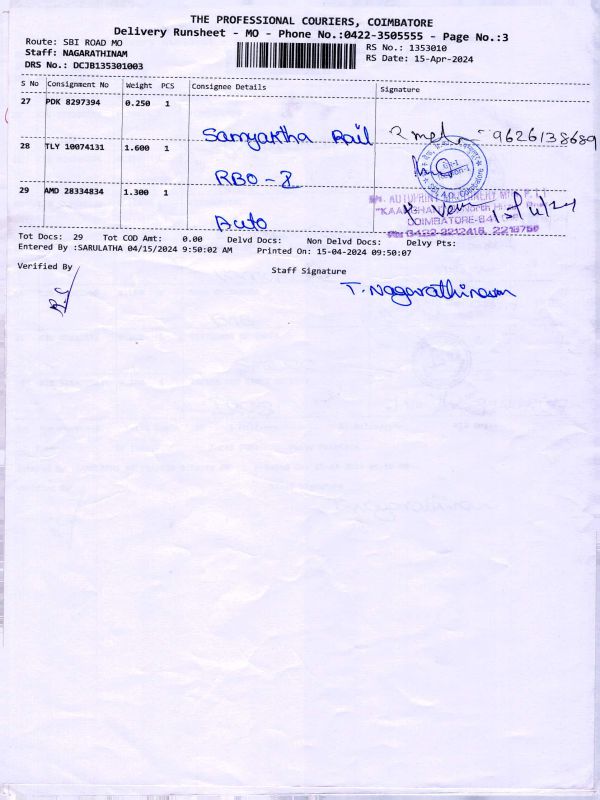 THE PROFESSIONAL COURIERS, COIMBATORE
Delivery Runsheet - MO - Phone No.:0422-3505555 - Page No.:3
Route: SBI ROAD MO RS No.: 1353010
Staff: NAGARATHINAM RS Date: 15-Apr-2024
DRS No.: DCJB135301003
S No Consignment No Weight PCS Consignee Details Signature
27 PDK 8297394 0.250 1
Samyartha Rail 9626138689
28 TLY 10074131 1.600 1
RBO - 8
29 AMD 28334834 1.300 1
COIMBATORE-641
Auto
0422-2212416, 2218750
Tot Docs: 29 Tot COD Amt: 0.00 Delvd Docs: Non Delvd Docs: Delvy Pts:
Entered By :SARULATHA 04/15/2024 9:50:02 AM Printed On: 15-04-2024 09:50:07
Verified By Staff Signature
T. Nagarathinam